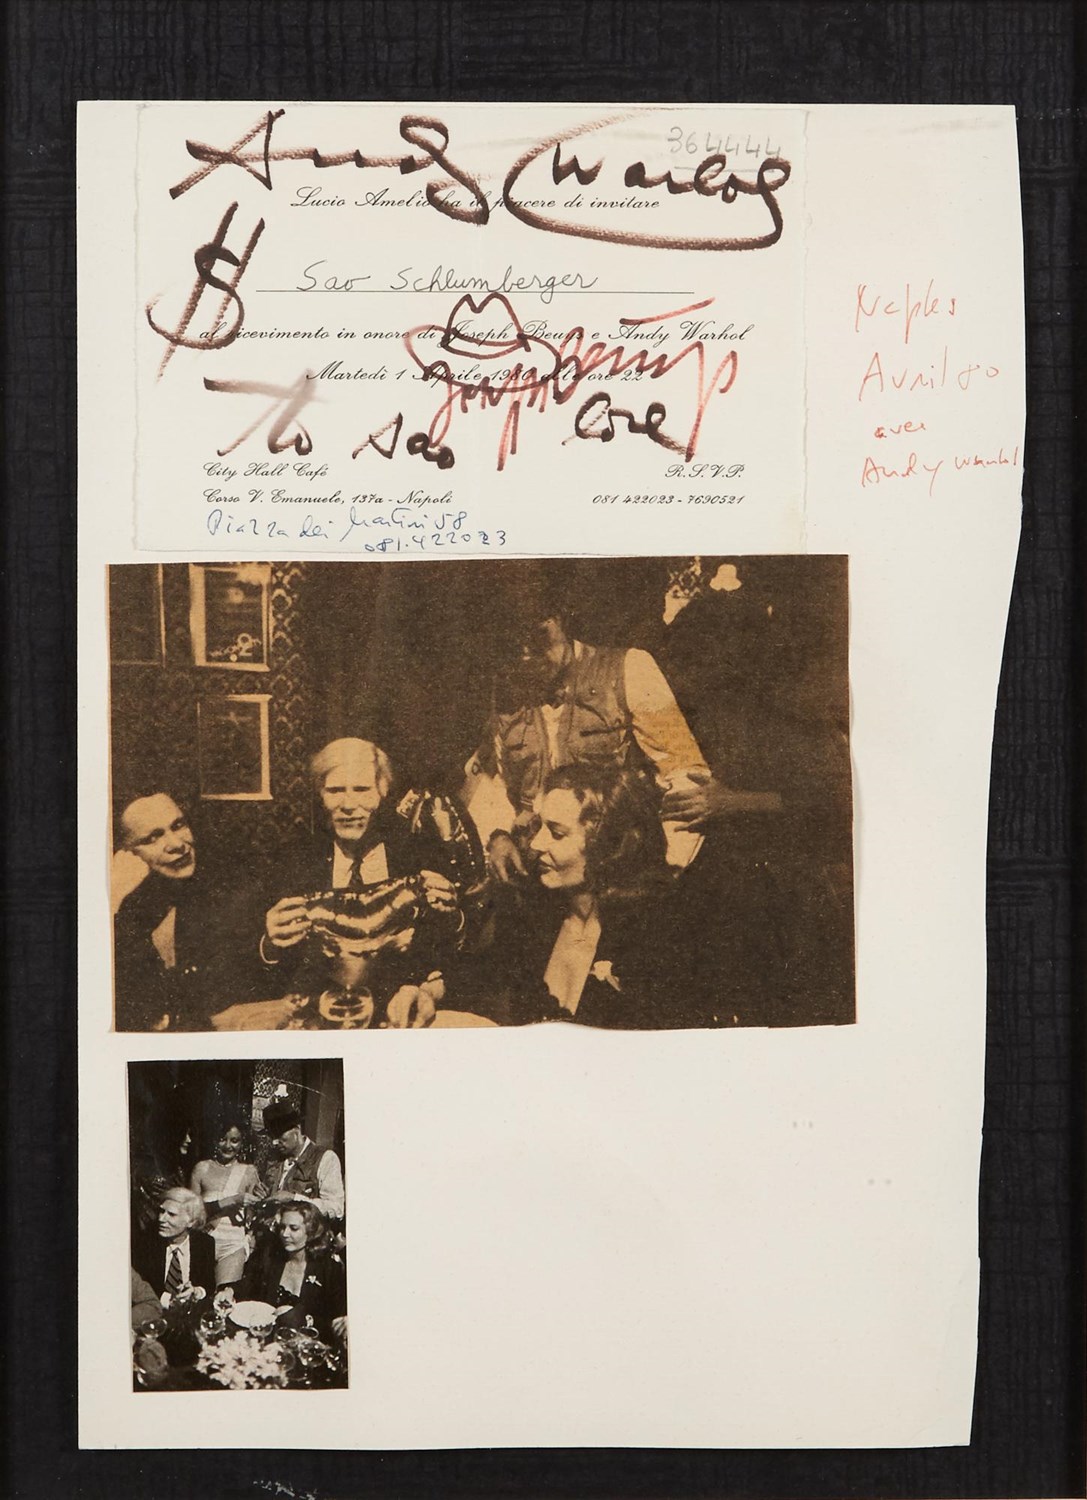 Andy Warhol
364444
Lucio Amelio ha il piacere di invitare
$
Sao Schlumberger
al ricevimento in onore di Joseph Beuys e Andy Warhol
Martedì 1 Aprile 1980 alle ore 22
Joseph Beuys
to Sao love
City Hall Cafè
R.S.V.P.
Corso V. Emanuele, 137a - Napoli
081 422023 - 7690521
Piazza dei Martiri 58
081.422023
Naples
Avril 80
avec
Andy Warhol